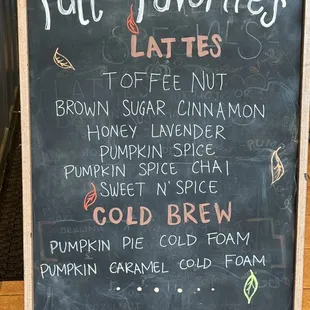 Fall Favorites
LATTES
TOFFEE NUT
BROWN SUGAR CINNAMON
HONEY LAVENDER
PUMPKIN SPICE
PUMPKIN SPICE CHAI
SWEET N' SPICE
COLD BREW
PUMPKIN PIE COLD FOAM
PUMPKIN CARAMEL COLD FOAM